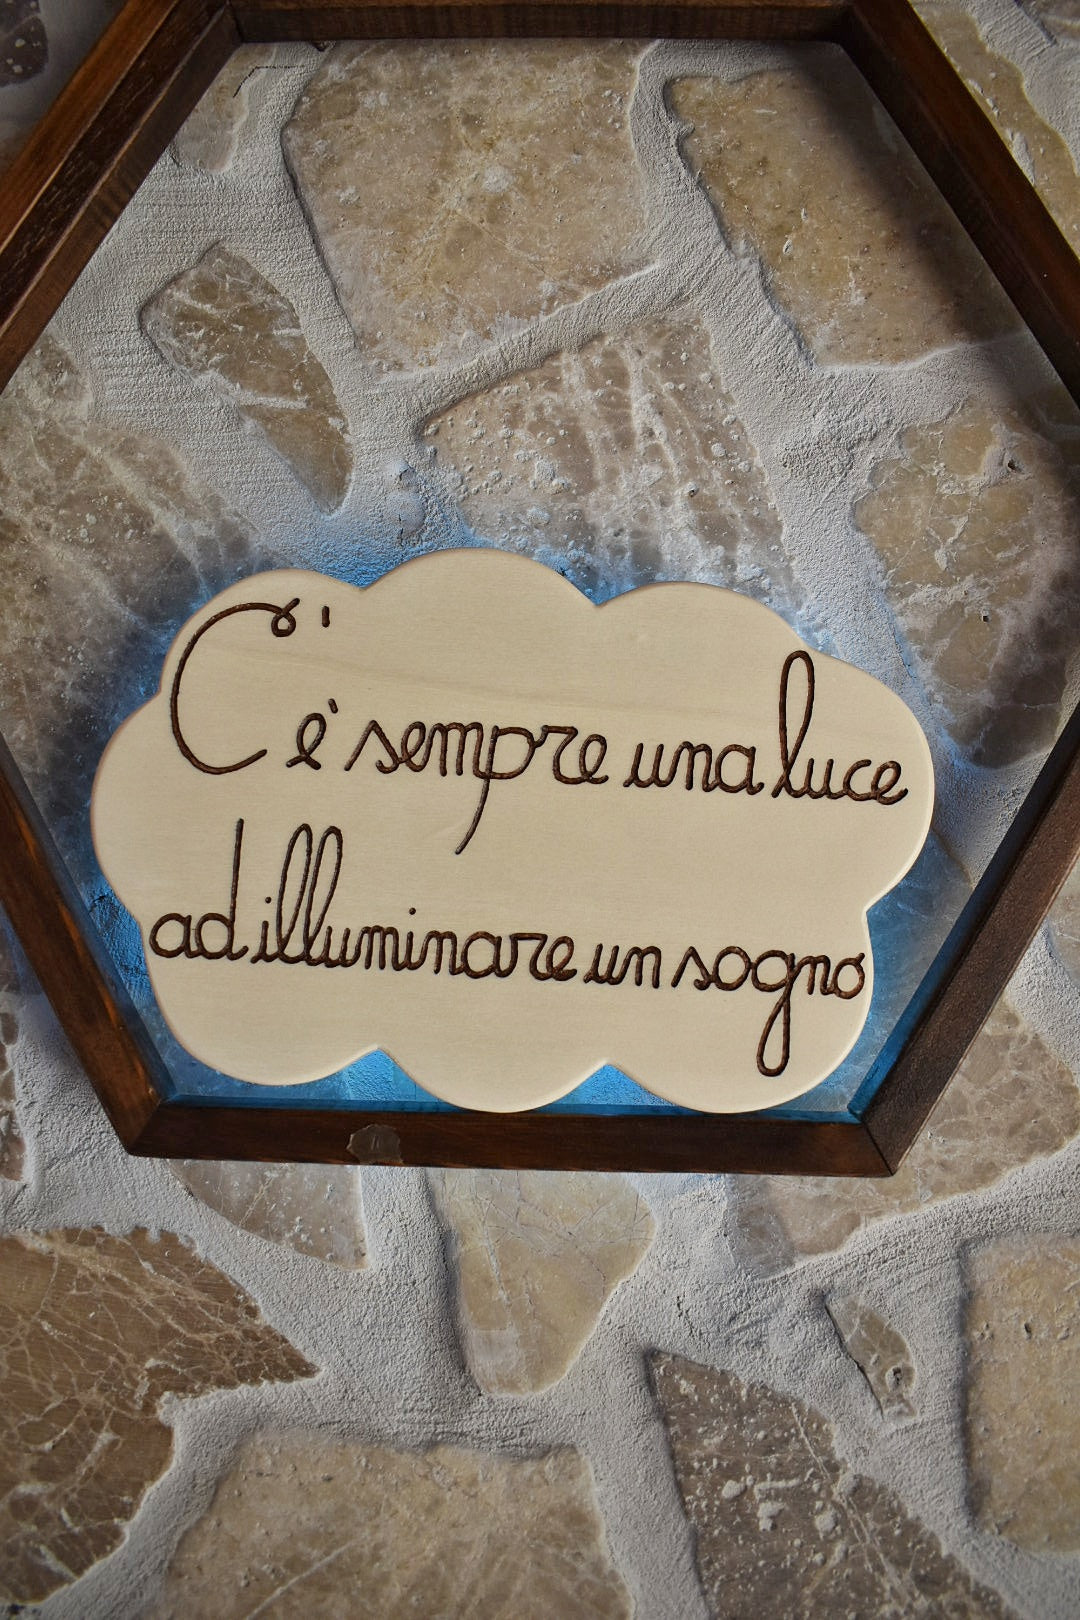 C'è sempre una luce
ad illuminare un sogno